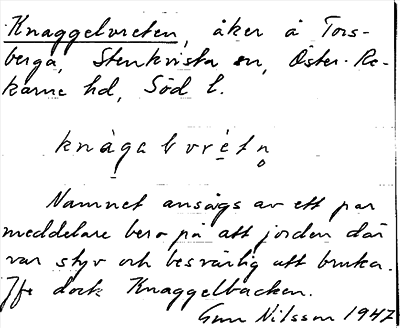 Knaggelvreten, åker å Tors-
berga, Stenkvista sn, Öster-Re-
karne hd, Söd l.
knàgalvrètn̥
Namnet ansågs av ett par
meddelare bero på att jorden där
var styv och besvärlig att bruka.
Jfr dock Knaggelbacken.
Gun Nilsson 1947